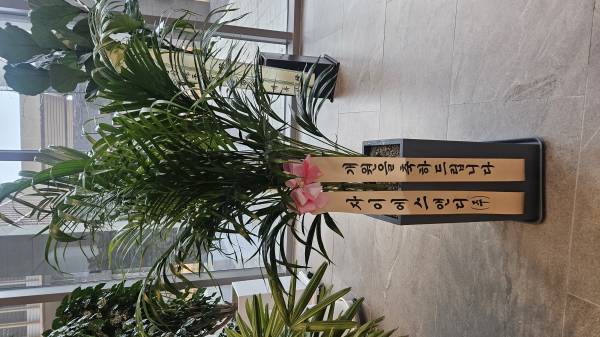 개원을축하드립니다
자이에스앤디(주)